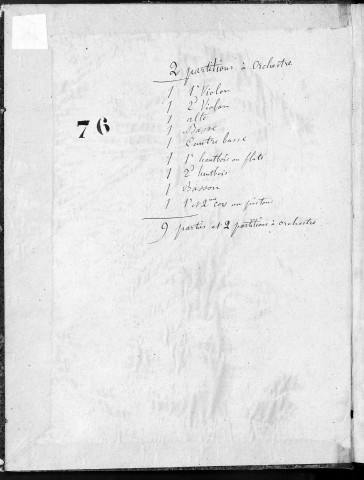 2 partitions à Orchestre
1 1r Violon
1 2e Violon
1 alto
1 Basse
1 Contre basse
76
1 1r hautbois ou flute
1 2e hautbois
1 Basson
1 1r et 2me cor ou piston
9 parties et 2 partitions à orchestre